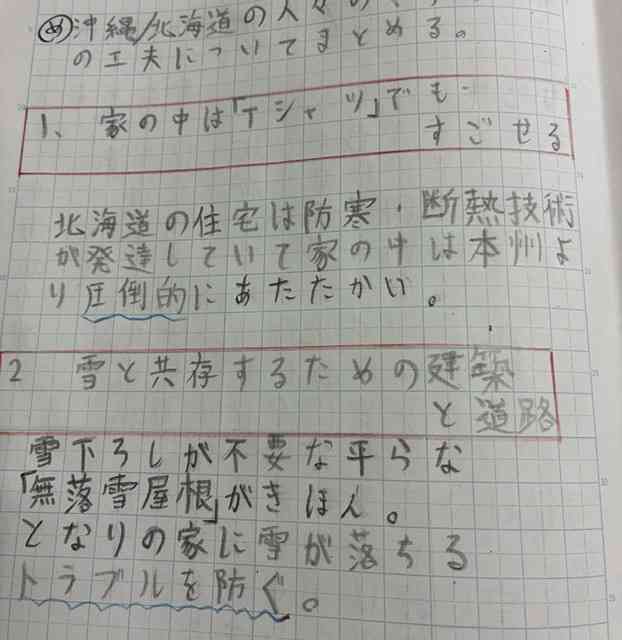 め 沖縄/北海道の人々の
の工夫についてまとめる。
1、 家の中は「Tシャツ」でも
すごせる
北海道の住宅は防寒・断熱技術
が発達していて家の中は本州よ
り圧倒的にあたたかい。
2 雪と共存するための建築
と道路
雪下ろしが不要な平らな
「無落雪屋根」がきほん。
となりの家に雪が落ちる
トラブルを防ぐ。